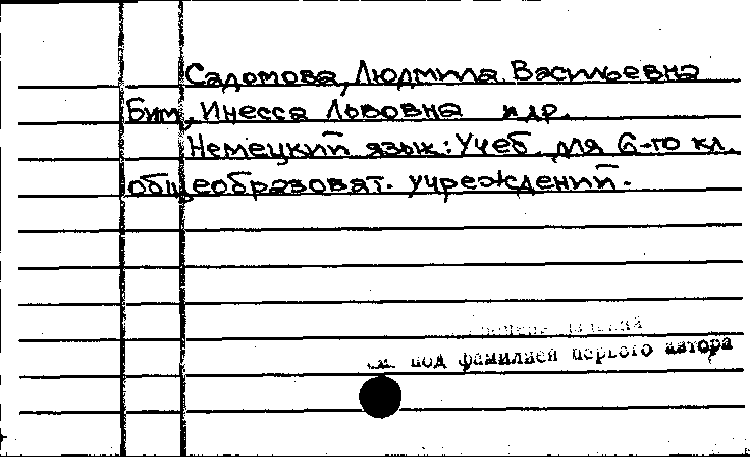 Садомова, Людмила Васильевна
Бим, Инесса Львовна и др.
Немецкий язык: Учеб. для 6-го кл.
общеобразоват. учреждений.
под фамилией первого автора